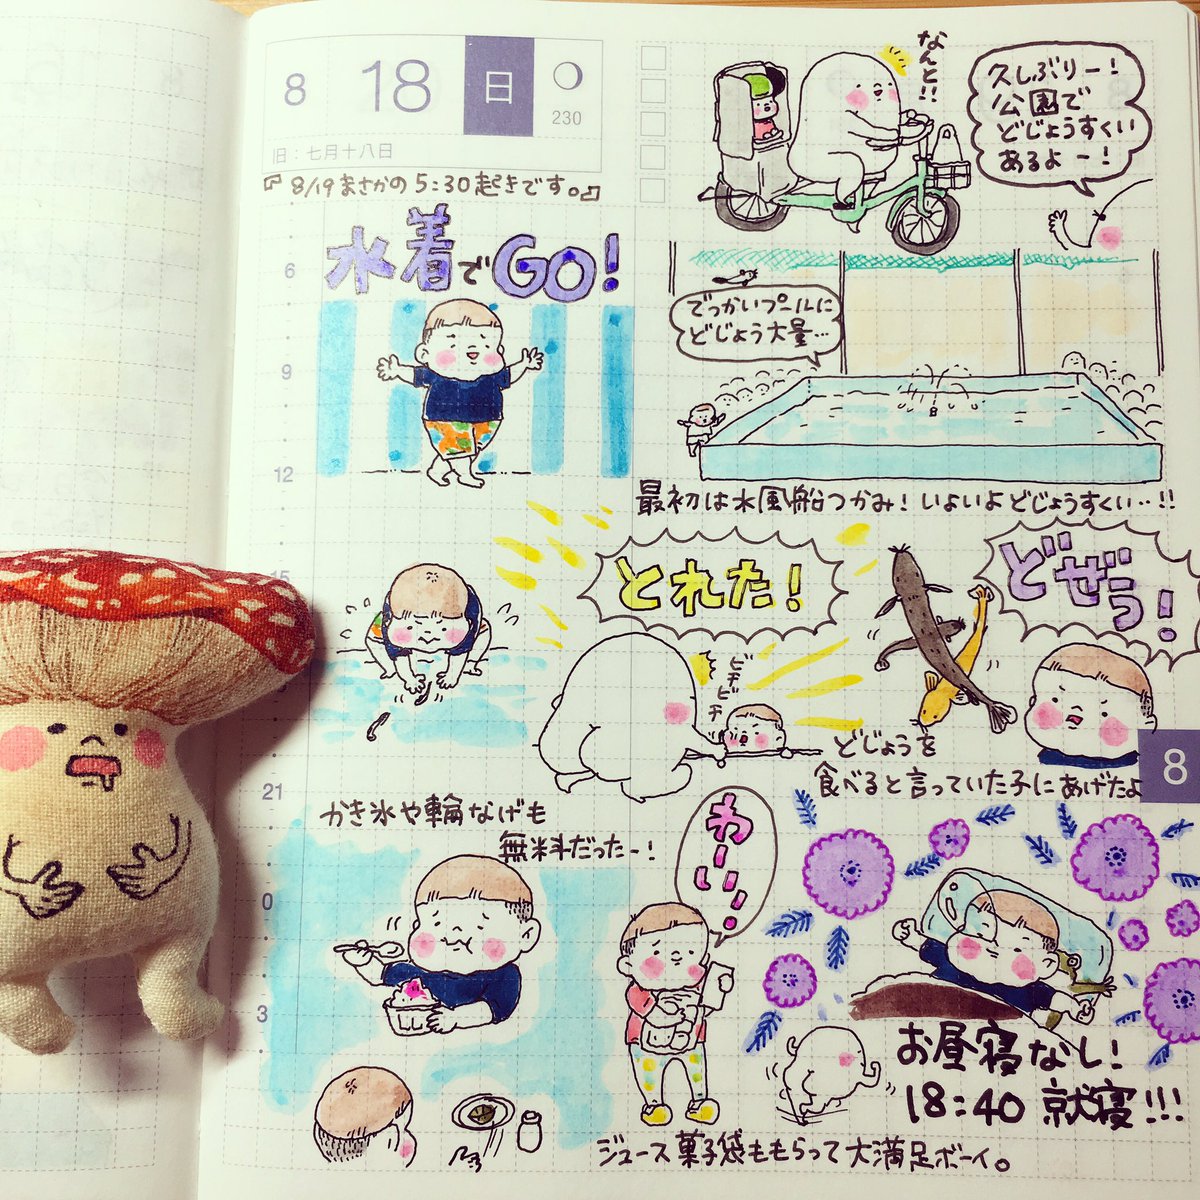 8
18
日
230
旧：七月十八日
『8/19まさかの5:30起きです。』
水着でGO!
なんと!!
久しぶりー!
公園で
どじょうすくい
あるよー!
でっかいプールに
どじょう大量…
最初は水風船つかみ!いよいよどじょうすくい…!!
とれた!
ビチビチ
どぜう!
どじょうを
食べると言っていた子にあげたよ
かき氷や輪なげも
無料だったー!
わーい!
お昼寝なし!
18:40 就寝!!!
ジュース菓子袋ももらって大満足ボーイ。
6
9
12
15
21
0
3
8